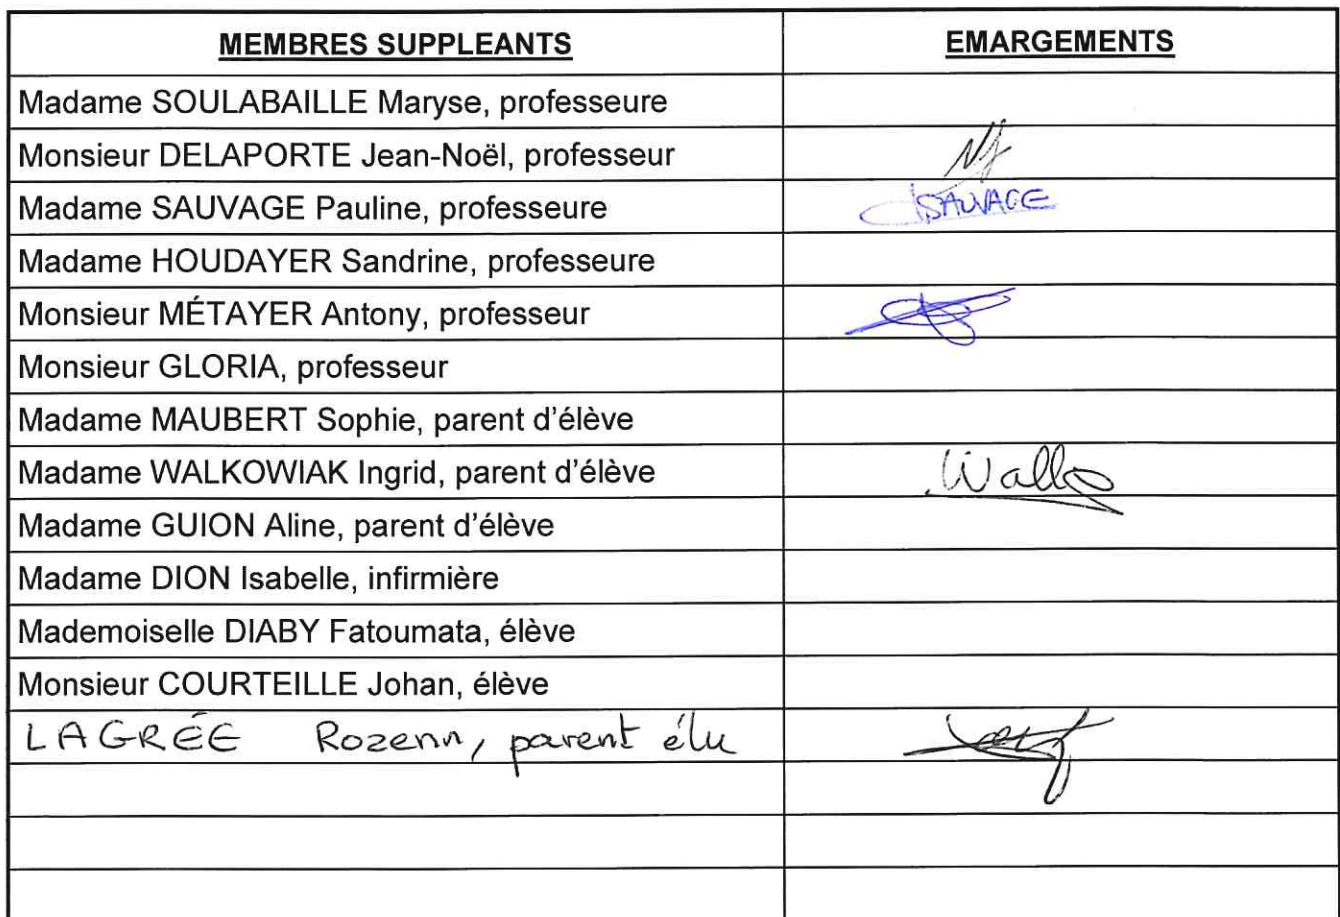 MEMBRES SUPPLEANTS EMARGEMENTS
Madame SOULABAILLE Maryse, professeure
Monsieur DELAPORTE Jean-Noël, professeur
Madame SAUVAGE Pauline, professeure SAUVAGE
Madame HOUDAYER Sandrine, professeure
Monsieur MÉTAYER Antony, professeur
Monsieur GLORIA, professeur
Madame MAUBERT Sophie, parent d'élève
Madame WALKOWIAK Ingrid, parent d'élève
Madame GUION Aline, parent d'élève
Madame DION Isabelle, infirmière
Mademoiselle DIABY Fatoumata, élève
Monsieur COURTEILLE Johan, élève
LAGRÉE Rozenn, parent élu